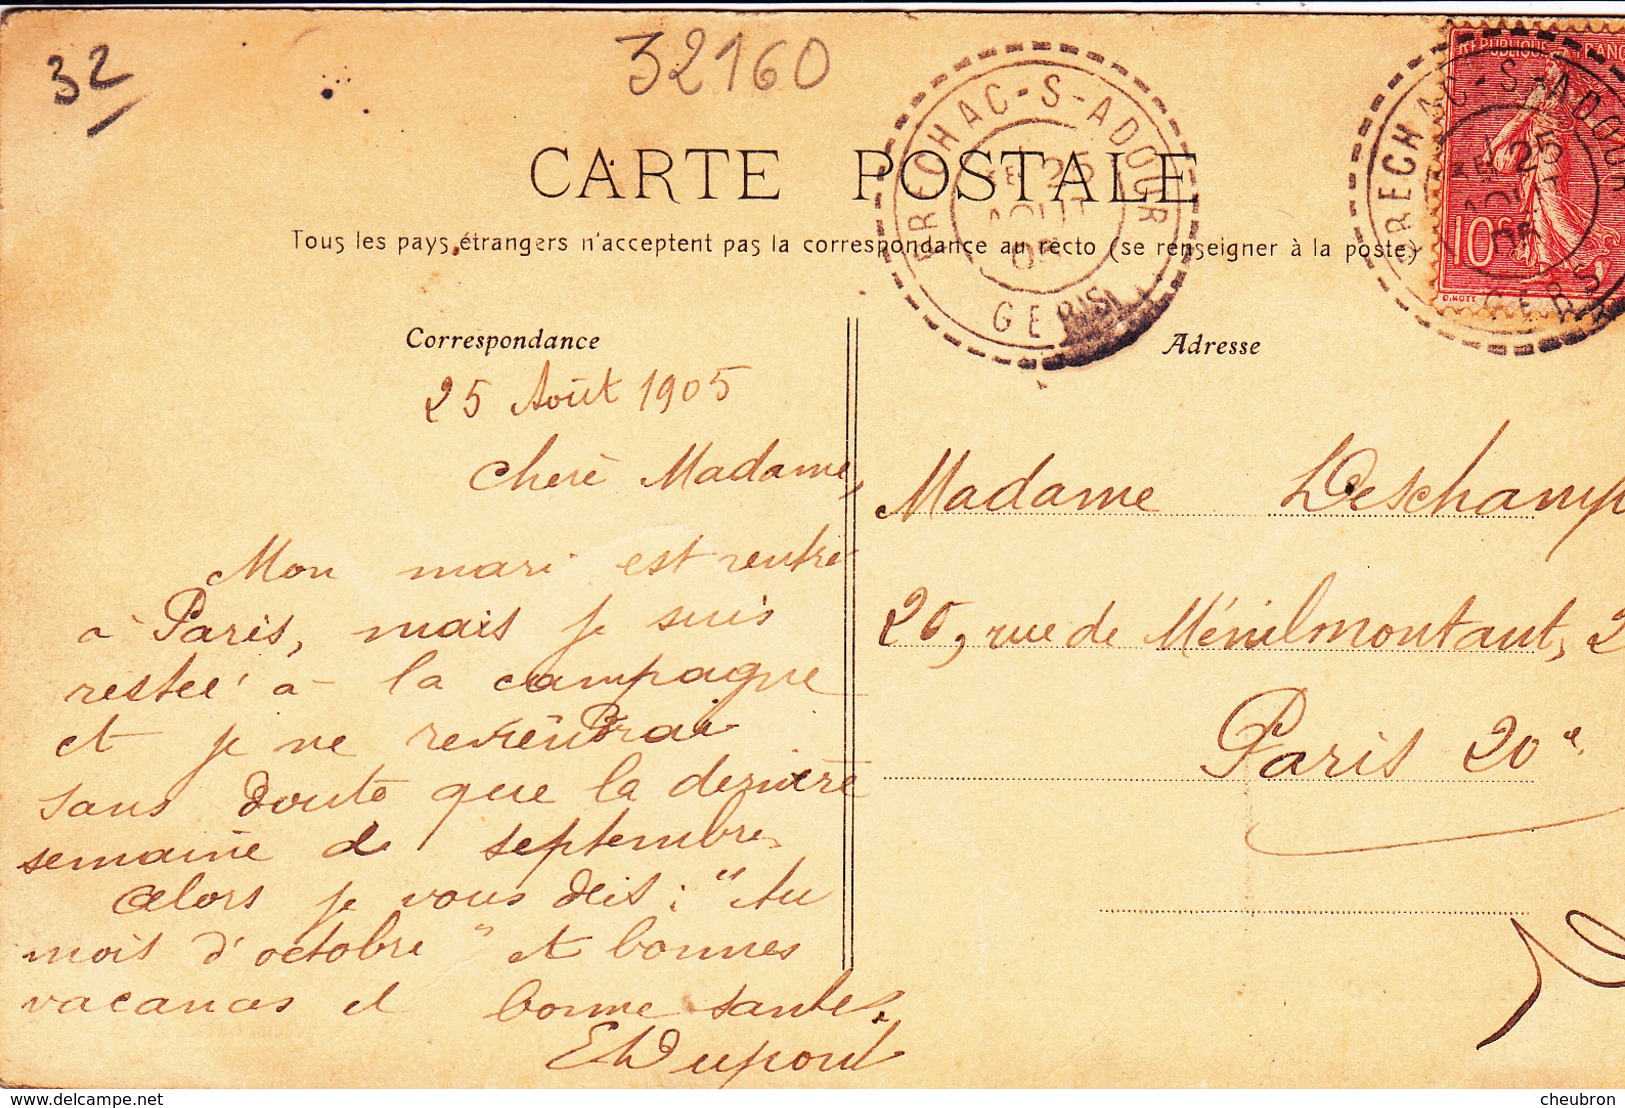 32
32160
CARTE POSTALE
Tous les pays étrangers n'acceptent pas la correspondance au recto (se renseigner à la poste)
BRECHAC-S-ADOUR
25
AOUT
05
GERS
RÉPUBLIQUE FRANC
10c
BRECHAC-S-ADOUR
25
AOUT
05
GERS
Correspondance
25 Août 1905
Chere Madame,
Mon mari est rentré
à Paris, mais je suis
restée à la campagne
et je ne reviendrai
sans doute que la dernière
semaine de septembre
Alors je vous dis : "Au
mois d'octobre" et bonnes
vacances et bonne santé.
E Dupont
Adresse
Madame Deschamp
20, rue de Ménilmontant, 2
Paris 20e
www.delcampe.net
cheubron